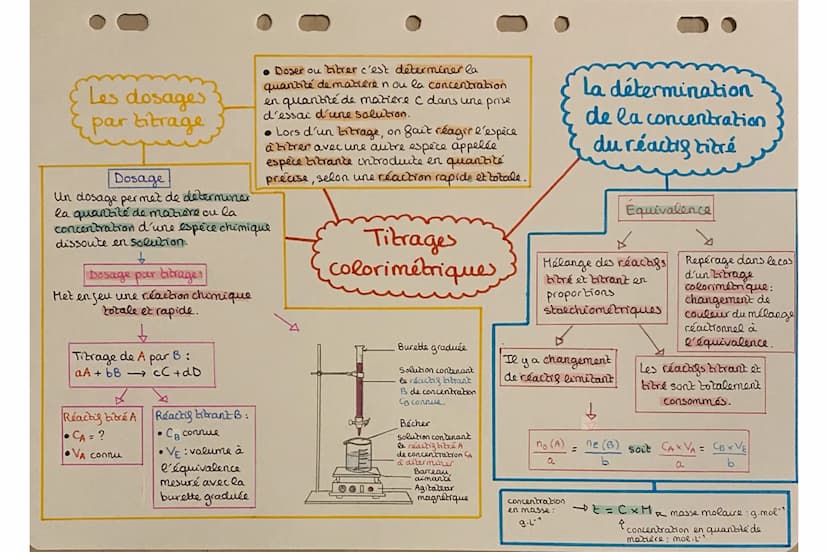 Les dosages
par titrage
• Doser ou titrer c'est déterminer la
quantité de matière n ou la concentration
en quantité de matière C dans une prise
d'essai d'une solution.
• Lors d'un titrage, on fait réagir l'espèce
à titrer avec une autre espèce appellée
espèce titrante introduite en quantité
précise, selon une réaction rapide et totale.
La détermination
de la concentration
du réactif titré
Titrages
colorimétriques
Dosage
Un dosage permet de déterminer
la quantité de matière ou la
concentration d'une espèce chimique
dissoute en solution.
Dosage par titrages
Met en jeu une réaction chimique
totale et rapide.
Titrage de A par B :
aA + bB → cC + dD
Réactif titré A
• CA = ?
• VA connu
Réactif titrant B :
• CB connue
• VE : volume à
l'équivalence
mesuré avec la
burette graduée
Burette graduée
Solution contenant
le réactif titrant
B de concentration
CB connue.
Bécher
solution contenant
le réactif titré A
de concentration CA
à déterminer
Barreau
aimanté
Agitateur
magnétique
Équivalence
Mélange des réactifs
titré et titrant en
proportions
stœchiométriques
Repérage dans le cas
d'un titrage
colorimétrique :
changement de
couleur du mélange
réactionnel à
l'équivalence.
Il y a changement
de réactif limitant
Les réactifs titrant et
titré sont totalement
consommés.
n0(A)/a = nE(B)/b soit CA×VA/a = CB×VE/b
concentration
en masse :
g.L⁻¹
→ t = C × M
masse molaire : g.mol⁻¹
concentration en quantité de
matière : mol.L⁻¹